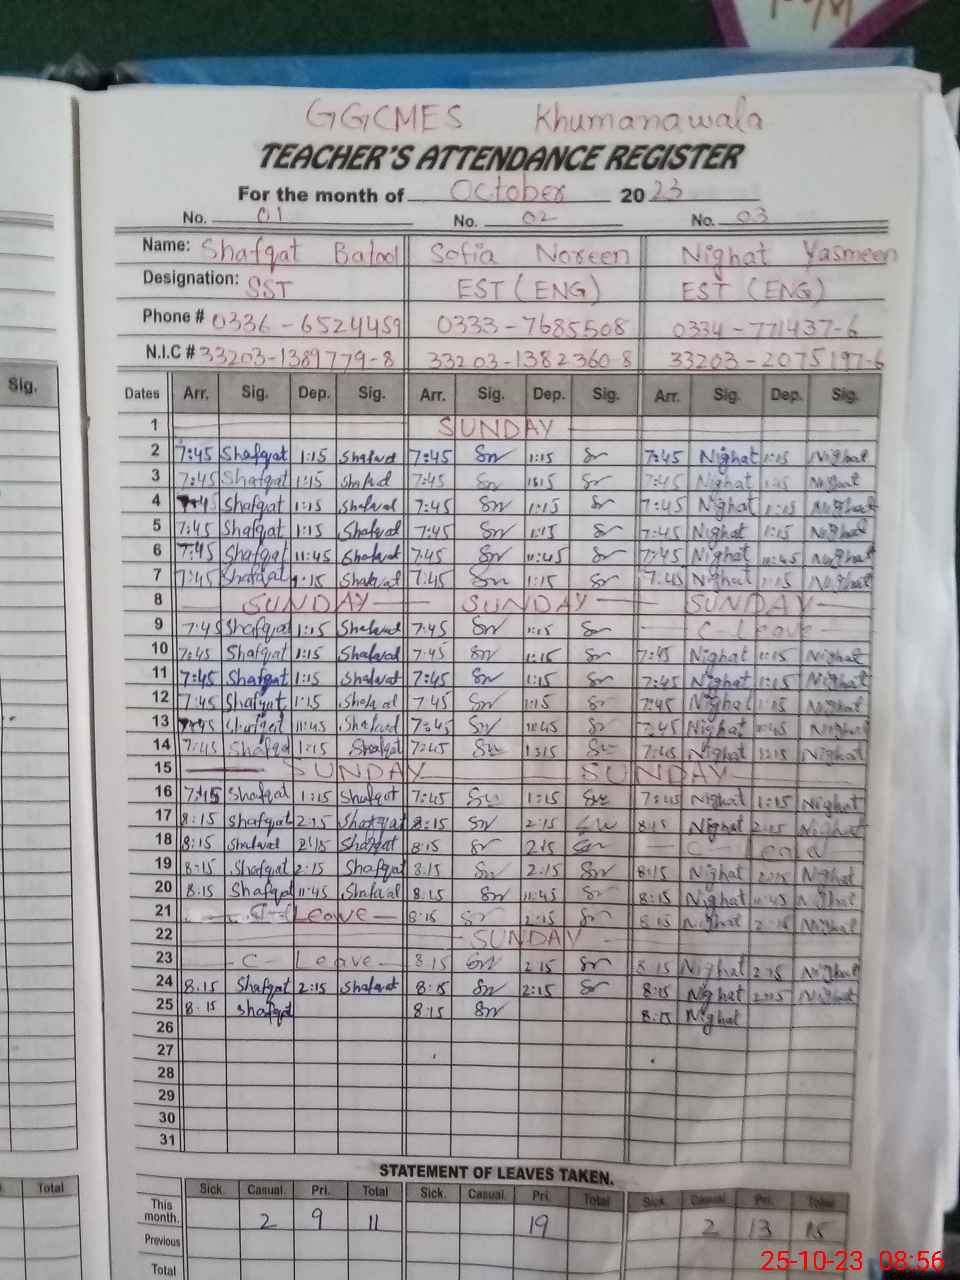 GGCMES Khumanawala
TEACHER'S ATTENDANCE REGISTER
For the month of October 2023
No. 01 No. 02 No. 03
Name: Shafqat Batool Sofia Noreen Nighat Yasmeen
Designation: SST EST (ENG) EST (ENG)
Phone # 0336-6524459 0333-7685508 0334-771437-6
N.I.C # 33203-1389779-8 33203-1382360-8 33203-2075197-6
Sig.
Dates Arr. Sig. Dep. Sig. Arr. Sig. Dep. Sig. Arr. Sig. Dep. Sig.
1 SUNDAY
2 7:45 Shafqat 1:15 Shafqat 7:45 Sn 1:15 Sn 7:45 Nighat 1:15 Nighat
3 7:45 Shafqat 1:15 7:45 Sn 1:15 Sn 7:45 Nighat 1:15 Nighat
4 7:45 Shafqat 1:15 Shafqat 7:45 Sn 1:15 Sn 7:45 Nighat 1:15 Nighat
5 7:45 Shafqat 1:15 Shafqat 7:45 Sn 1:15 Sn 7:45 Nighat 1:15 Nighat
6 7:45 Shafqat 11:45 Shafqat 7:45 Sn 11:45 Sn 7:45 Nighat 11:45 Nighat
7 7:45 Shafqat 1:15 Shafqat 7:45 Sn 1:15 Sn 7:45 Nighat 1:15 Nighat
8 SUNDAY SUNDAY SUNDAY
9 7:45 Shafqat 1:15 Shafqat 7:45 Sn 1:15 Sn C-Leave
10 7:45 Shafqat 1:15 Shafqat 7:45 Sn 1:15 Sn 7:45 Nighat 1:15 Nighat
11 7:45 Shafqat 1:15 Shafqat 7:45 Sn 1:15 Sn 7:45 Nighat 1:15 Nighat
12 7:45 Shafqat 1:15 Shafqat 7:45 Sn 1:15 Sn 7:45 Nighat 1:15 Nighat
13 7:45 Shafqat 11:45 Shafqat 7:45 Sn 11:45 Sn 7:45 Nighat 11:45 Nighat
14 7:45 Shafqat 1:15 Shafqat 7:45 Sn 1:15 Sn 7:45 Nighat 1:15 Nighat
15 SUNDAY SUNDAY
16 7:45 Shafqat 1:15 Shafqat 7:45 Sn 1:15 Sn 7:45 Nighat 1:15 Nighat
17 8:15 Shafqat 2:15 Shafqat 8:15 Sn 2:15 Sn 8:15 Nighat 2:15 Nighat
18 8:15 Shafqat 2:15 Shafqat 8:15 Sn 2:15 Sn C-
19 8:15 Shafqat 2:15 Shafqat 8:15 Sn 2:15 Sn 8:15 Nighat 2:15 Nighat
20 8:15 Shafqat 11:45 Shafqat 8:15 Sn 11:45 Sn 8:15 Nighat 11:45 Nighat
21 Leave 8:15 Sn 2:15 Sn 8:15 Nighat 2:15 Nighat
22 SUNDAY
23 C-Leave 8:15 Sn 2:15 Sn 8:15 Nighat 2:15 Nighat
24 8:15 Shafqat 2:15 Shafqat 8:15 Sn 2:15 Sn 8:15 Nighat 2:15 Nighat
25 8:15 Shafqat 8:15 Sn 8:15 Nighat
26
27
28
29
30
31
STATEMENT OF LEAVES TAKEN.
Total Sick. Casual. Pri. Total Sick. Casual. Pri. Total Sick. Casual. Pri. Total
This month. 2 9 11 19 2 13 15
Previous
Total
25-10-23 08:56